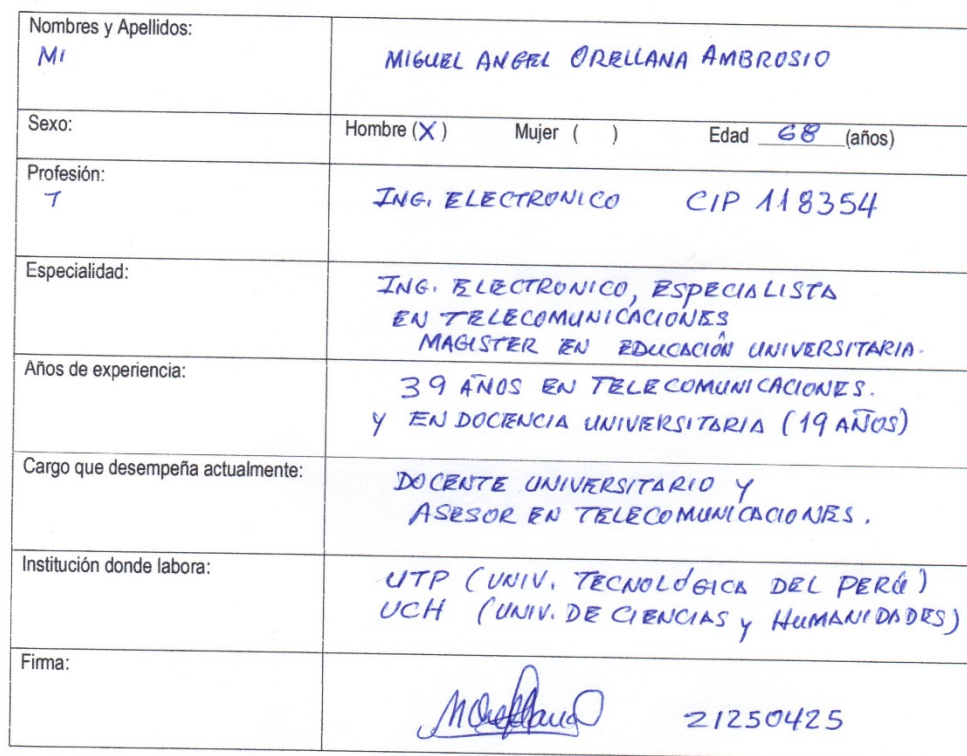 Nombres y Apellidos:
MI
MIGUEL ANGEL ORELLANA AMBROSIO
Sexo:
Hombre (X) Mujer ( ) Edad 68 (años)
Profesión:
I
ING. ELECTRONICO CIP 118354
Especialidad:
ING. ELECTRONICO, ESPECIALISTA
EN TELECOMUNICACIONES
MAGISTER EN EDUCACIÓN UNIVERSITARIA.
Años de experiencia:
39 AÑOS EN TELECOMUNICACIONES.
Y EN DOCENCIA UNIVERSITARIA (19 AÑOS)
Cargo que desempeña actualmente:
DOCENTE UNIVERSITARIO Y
ASESOR EN TELECOMUNICACIONES.
Institución donde labora:
UTP (UNIV. TECNOLÓGICA DEL PERÚ)
UCH (UNIV. DE CIENCIAS Y HUMANIDADES)
Firma:
MOrellana 21250425